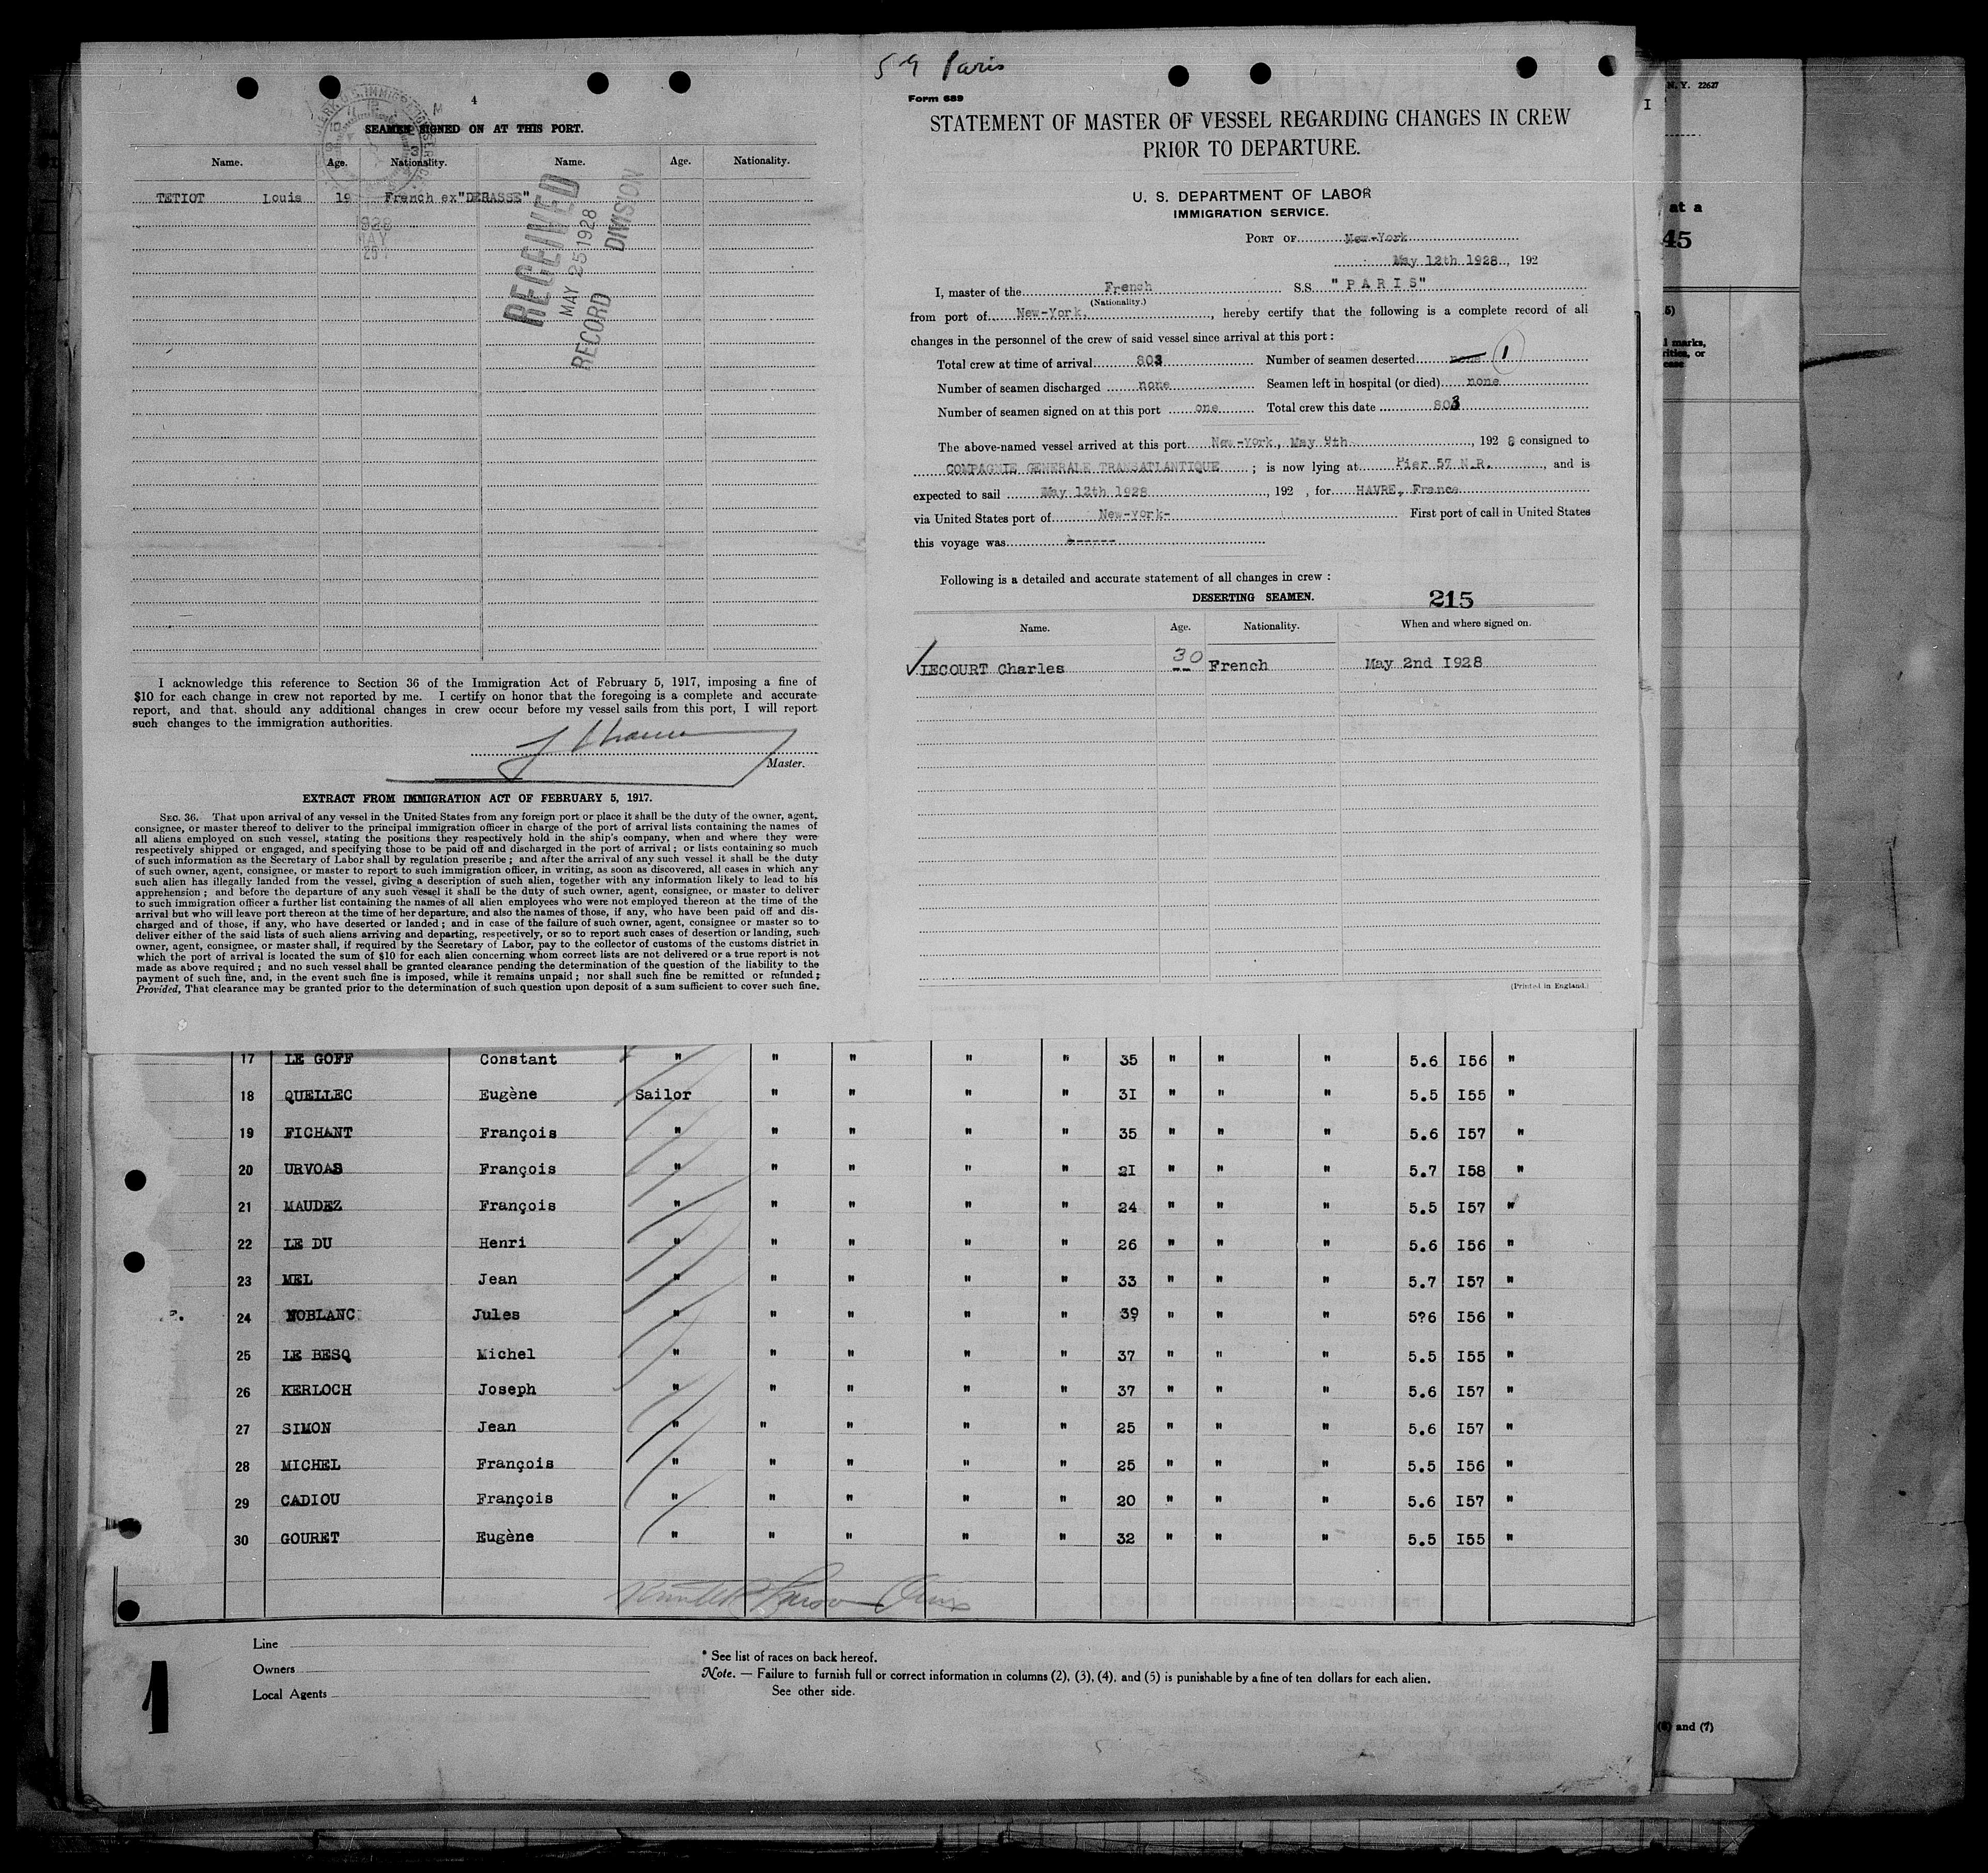 59 Paris
4
SEAMEN SIGNED ON AT THIS PORT.
Name. Age. Nationality. Name. Age. Nationality.
TETIOT Louis 19 French ex"DERASSE"
928
MAY
25
RECEIVED
MAY 25 1928
RECORD DIVISION
I acknowledge this reference to Section 36 of the Immigration Act of February 5, 1917, imposing a fine of
$10 for each change in crew not reported by me. I certify on honor that the foregoing is a complete and accurate
report, and that. should any additional changes in crew occur before my vessel sails from this port, I will report
such changes to the immigration authorities.
Master.
EXTRACT FROM IMMIGRATION ACT OF FEBRUARY 5, 1917.
SEC. 36. That upon arrival of any vessel in the United States from any foreign port or place it shall be the duty of the owner, agent,
consignee, or master thereof to deliver to the principal immigration officer in charge of the port of arrival lists containing the names of
all aliens employed on such vessel, stating the positions they respectively hold in the ship's company, when and where they were
respectively shipped or engaged, and specifying those to be paid off and discharged in the port of arrival; or lists containing so much
of such information as the Secretary of Labor shall by regulation prescribe; and after the arrival of any such vessel it shall be the duty
of such owner, agent, consignee, or master to report to such immigration officer, in writing, as soon as discovered, all cases in which any
such alien has illegally landed from the vessel, giving a description of such alien, together with any information likely to lead to his
apprehension; and before the departure of any such vessel it shall be the duty of such owner, agent, consignee, or master to deliver
to such immigration officer a further list containing the names of all alien employees who were not employed thereon at the time of the
arrival but who will leave port thereon at the time of her departure, and also the names of those, if any, who have been paid off and dis-
charged and of those, if any, who have deserted or landed; and in case of the failure of such owner, agent, consignee or master so to
deliver either of the said lists of such aliens arriving and departing, respectively, or so to report such cases of desertion or landing, such
owner, agent, consignee, or master shall, if required by the Secretary of Labor, pay to the collector of customs of the customs district in
which the port of arrival is located the sum of $10 for each alien concerning whom correct lists are not delivered or a true report is not
made as above required; and no such vessel shall be granted clearance pending the determination of the question of the liability to the
payment of such fine, and, in the event such fine is imposed, while it remains unpaid; nor shall such fine be remitted or refunded;
Provided, That clearance may be granted prior to the determination of such question upon deposit of a sum sufficient to cover such fine.
Form 689
STATEMENT OF MASTER OF VESSEL REGARDING CHANGES IN CREW
PRIOR TO DEPARTURE.
U. S. DEPARTMENT OF LABOR
IMMIGRATION SERVICE.
PORT OF New-York
May 12th 1928, 192
I, master of the French S.S. "PARIS"
(Nationality.)
from port of New-York, , hereby certify that the following is a complete record of all
changes in the personnel of the crew of said vessel since arrival at this port:
Total crew at time of arrival 803 Number of seamen deserted none 1
Number of seamen discharged none Seamen left in hospital (or died) none
Number of seamen signed on at this port one Total crew this date 803
The above-named vessel arrived at this port New-York, May 9th , 192 8 consigned to
COMPAGNIE GENERALE TRANSATLANTIQUE ; is now lying at Pier 57 N.R. , and is
expected to sail May 12th 1928 , 192 , for HAVRE, France
via United States port of New-York- First port of call in United States
this voyage was ------
Following is a detailed and accurate statement of all changes in crew:
DESERTING SEAMEN. 215
Name. Age. Nationality. When and where signed on.
LECOURT Charles 30 French May 2nd I928
(Printed in England.)
17 LE GOFF Constant " " " " " 35 " " " 5.6 I56 "
18 QUELLEC Eugène Sailor " " " " 3I " " " 5.5 I55 "
19 FICHANT François " " " " " 35 " " " 5.6 I57 "
20 URVOAS François " " " " " 2I " " " 5.7 I58 "
21 MAUDEZ François " " " " " 24 " " " 5.5 I57 "
22 LE DU Henri " " " " " 26 " " " 5.6 I56 "
23 MEL Jean " " " " " 33 " " " 5.7 I57 "
24 NOBLANC Jules " " " " " 39 " " " 5?6 I56 "
25 LE BESQ Michel " " " " " 37 " " " 5.5 I55 "
26 KERLOCH Joseph " " " " " 37 " " " 5.6 I57 "
27 SIMON Jean " " " " " 25 " " " 5.6 I57 "
28 MICHEL François " " " " " 25 " " " 5.5 I56 "
29 CADIOU François " " " " " 20 " " " 5.6 I57 "
30 GOURET Eugène " " " " " 32 " " " 5.5 I55 "
Line
Owners
Local Agents
* See list of races on back hereof.
Note. — Failure to furnish full or correct information in columns (2), (3), (4), and (5) is punishable by a fine of ten dollars for each alien.
See other side.
1
N. Y. 22627
I
at a
45
5)
l marks,
rities, or
case
(6) and (7)